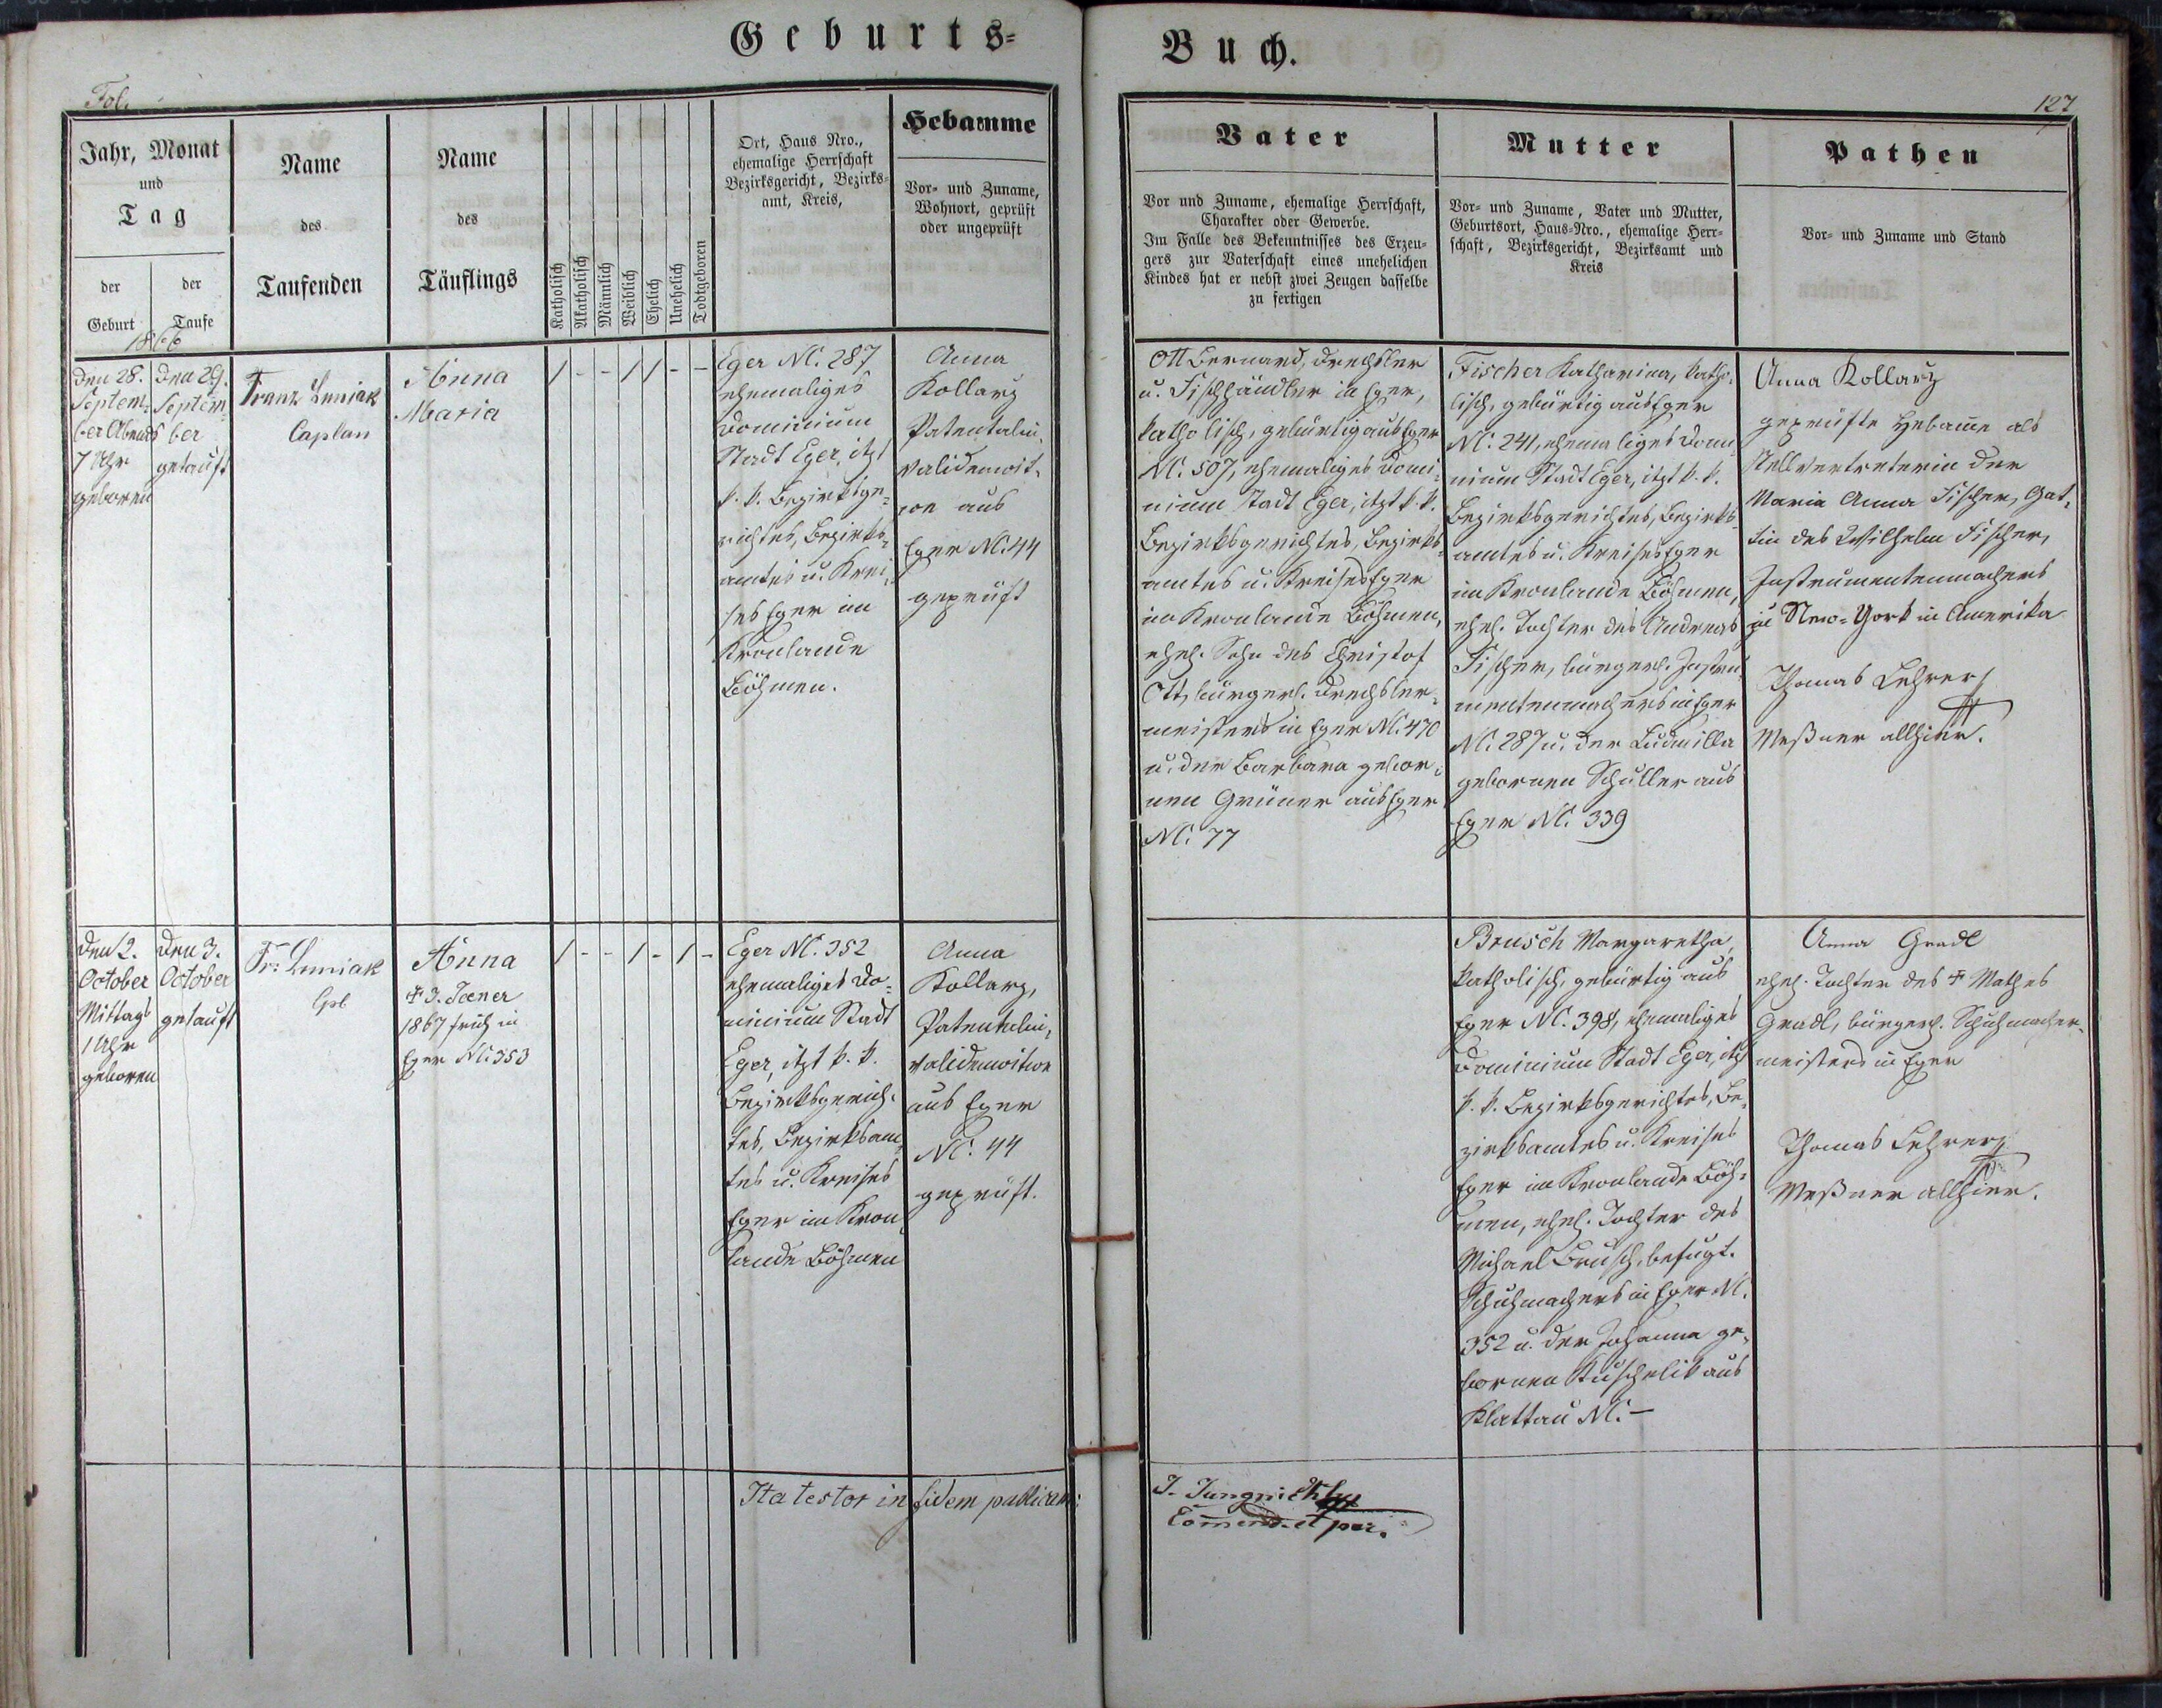 Geburts=
Buch.
Fol.
127
Jahr, Monat
und
Tag
der
Geburt
der
Taufe
1866
Name
des
Taufenden
Name
des
Täuflings
Katholisch
Akatholisch
Männlich
Weiblich
Ehelich
Unehelich
Todtgeboren
Ort, Haus Nro.,
ehemalige Herrschaft
Bezirksgericht, Bezirks=
amt, Kreis,
Hebamme
Vor- und Zuname,
Wohnort, geprüft
oder ungeprüft
Vater
Vor und Zuname, ehemalige Herrschaft,
Charakter oder Gewerbe.
Im Falle des Bekenntnisses des Erzeu=
gers zur Vaterschaft eines unehelichen
Kindes hat er nebst zwei Zeugen dasselbe
zu fertigen
Mutter
Vor- und Zuname, Vater und Mutter,
Geburtsort, Haus-Nro., ehemalige Herr=
schaft, Bezirksgericht, Bezirksamt und
Kreis
Pathen
Vor- und Zuname und Stand
Den 28.
Septem-
ber Abends
7 Uhr
geboren
Den 29.
Septem
ber
getauft
Franz Luniak
Caplan
Anna
Maria
/ - - / / - -
Eger N. 287
ehemaliges
Dominium
Stadt Eger, itzt
k. k. Bezirksge=
richtes, Bezirks-
amtes u. Krei-
ses Eger im
Kronlande
Böhmen.
Anna
Kollarz
Patentalin-
validenwit-
we aus
Eger N. 44
geprüft
Ott Bernard, Drechsler
u. Fischhändler in Eger,
katholisch, gebürtig aus Eger
N. 507, ehemaliges Domi-
nium Stadt Eger, itzt k. k.
Bezirksgerichtes, Bezirks-
amtes u. Kreises Eger
im Kronlande Böhmen,
ehel. Sohn des Christof
Ott, bürgerl. Drechsler-
meisters in Eger N. 470
u. der Barbara gebor-
nen Grüner aus Eger
N. 77
Fischer Katharina, katho-
lisch, gebürtig aus Eger
N. 241, ehemaliges Domi
nium Stadt Eger, itzt k. k.
Bezirksgerichtes, Bezirks-
amtes u. Kreises Eger
im Kronlande Böhmen,
ehel. Tochter des Andreas
Fischer, bürgerl. Instru-
mentenmachers in Eger
N. 287 u. der Ludmilla
gebornen Schuller aus
Eger N. 339
Anna Kollarz
geprüfte Hebame als
Stellvertreterin der
Maria Anna Fischer, Gat-
tin des Wilhelm Fischer,
Instrumentenmachers
zu New=York in Amerika
Thomas Lehrer
Meßner allhier.
Den 2.
October
Mittags
1 Uhr
geboren
Den 3.
October
getauft
Fr: Luniak
Cpl.
Anna
† 3. Jaener
1867 früh in
Eger N. 353
/ - - / - / -
Eger N. 352
ehemaliges Do-
minium Stadt
Eger, itzt k. k.
Bezirksgerich-
tes, Bezirksam-
tes u. Kreises
Eger im Kron
lande Böhmen
Anna
Kollarz,
Patentalin-
validenwitwe
aus Eger
N. 44
geprüft.
Brusch Margaretha,
katholisch, gebürtig aus
Eger N. 398, ehemaliges
Dominium Stadt Eger, itzt
k. k. Bezirksgerichtes, Be-
zirksamtes u. Kreises
Eger im Kronlande Böh-
men, ehel. Tochter des
Michael Brusch, befugt.
Schuhmachers in Eger N.
352 u. der Johanna ge-
bornen Kuschelik aus
Klattau N. –
Anna Gradl
ehel. Tochter des † Mathes
Gradl, bürgerl. Schuhmacher-
meisters in Eger
Thomas Lehrer
Meßner allhier.
Ita testor in fidem publicam: